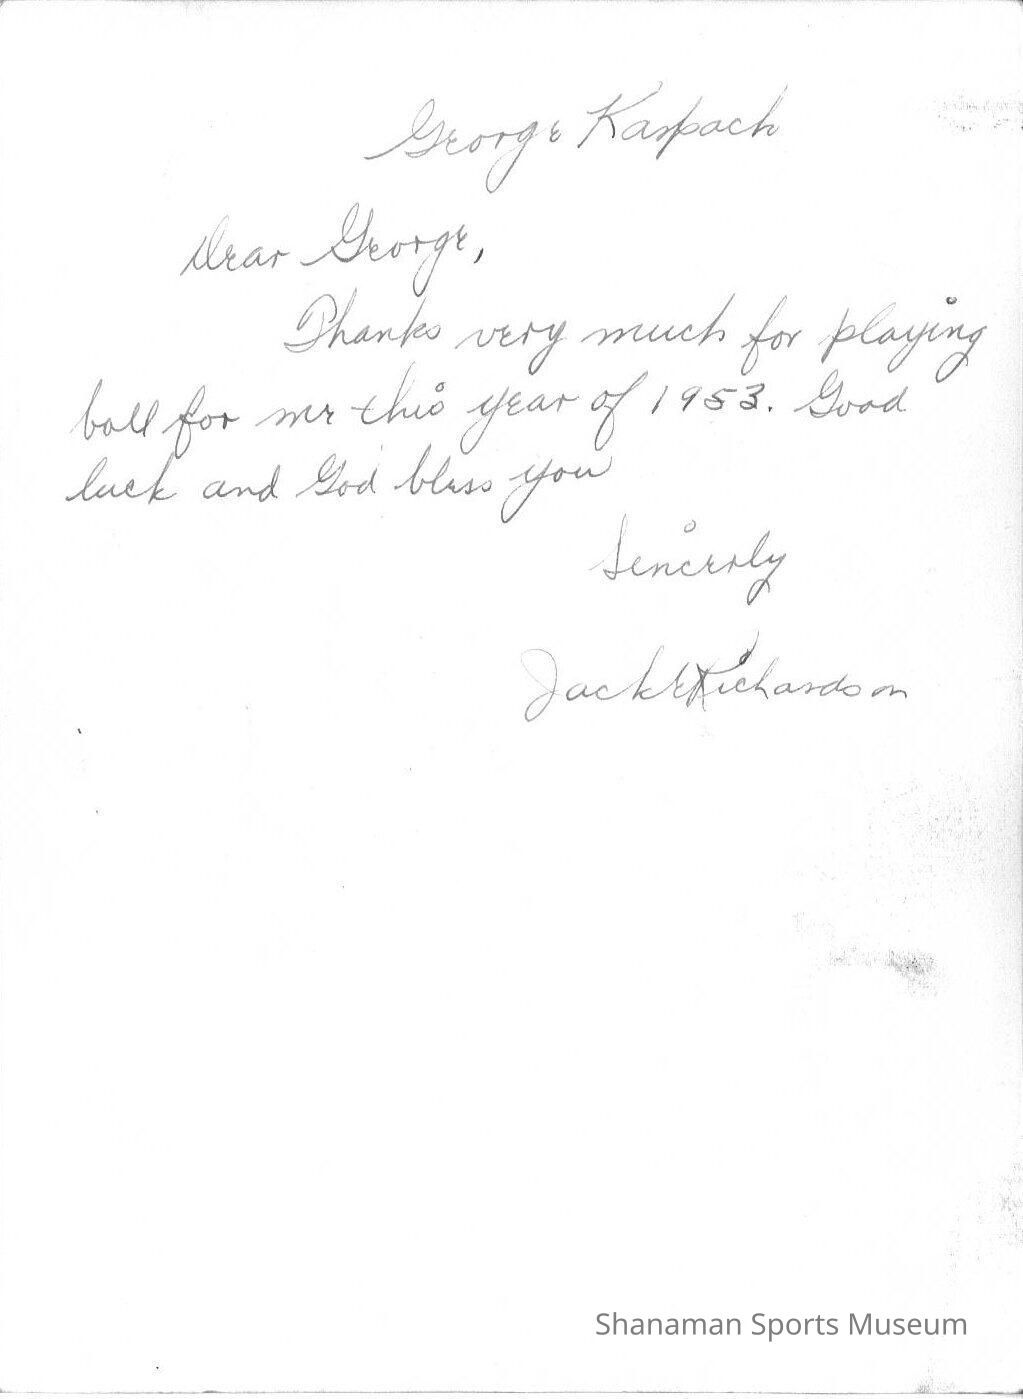 George Karpach
Dear George,
Thanks very much for playing
ball for me this year of 1953. Good
luck and God bless you
Sincerly
Jack E Richardson
Shanaman Sports Museum